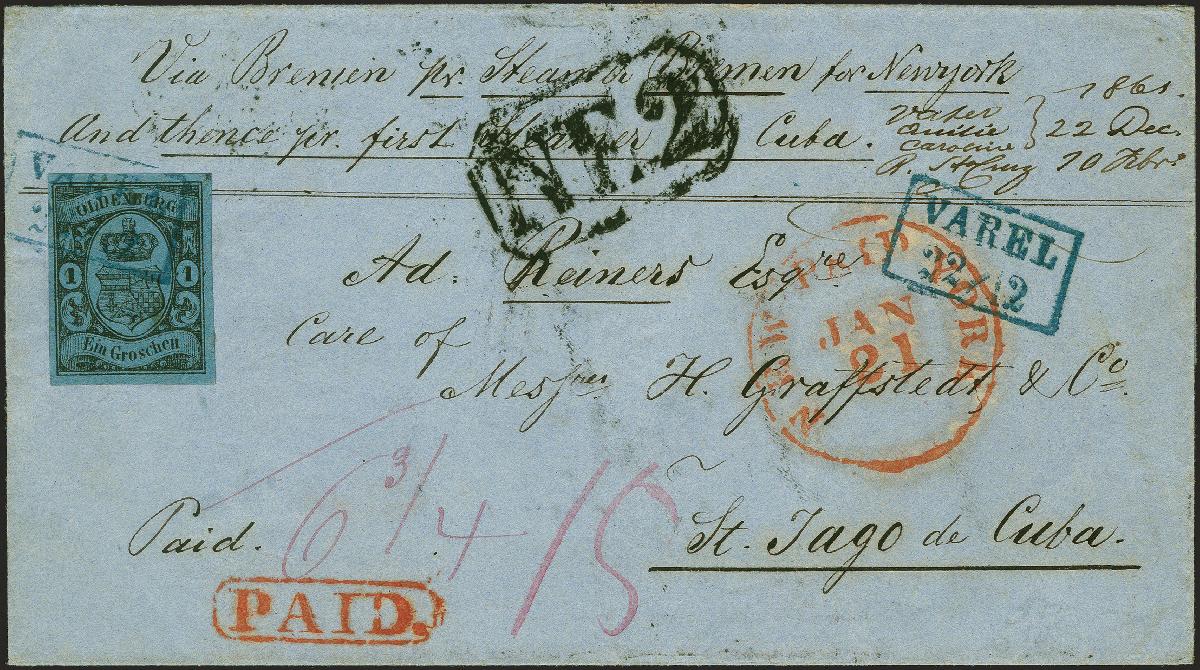 Via Bremen pr. Steamer Bremen for Newyork
And thence pr. first Steamer Cuba.
1861.
Vater
Emilie
Caroline
22 Dec.
R. StCruz 10 Febr
VAREL
22/12
NE2
OLDENBURG
1 1
Ein Groschen
Ad. Reiners Esqre
NEW PAID YORK
JAN
21
Care of
Messrs H. Graffstedt & Co.
6 3/4 / 5
Paid.
St. Jago de Cuba.
PAID.